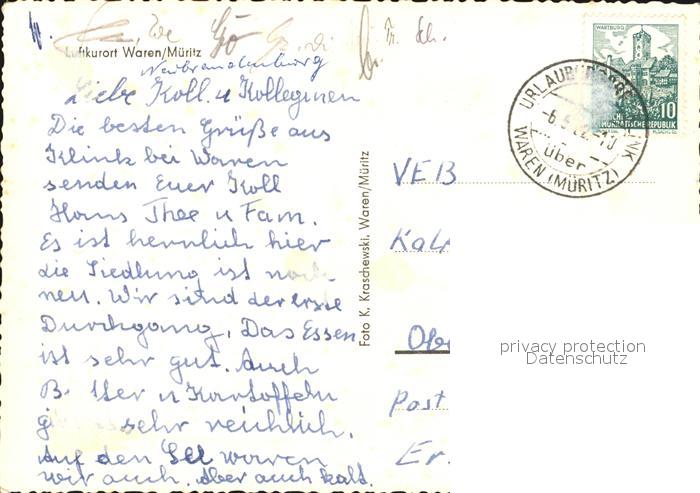 Luftkurort Waren/Müritz
Neubrandenburg
Liebe Koll. u Kolleginen
Die besten Grüße aus
Klink bei Waren
senden Euer Koll
Hans Thee u Fam.
Es ist herrlich hier
die Siedlung ist noch
neu. Wir sind der erste
Durchgang, Das Essen
ist sehr gut. Auch
B.         u Kartoffeln
sehr reichlich.
Auf den See waren
wir auch. Aber auch kalt.
Foto K. Kraschewski, Waren/Müritz
WARTBURG
10
DEMOKRATISCHE REPUBLIK
über
WAREN (MÜRITZ)
VEB
Post
privacy protection
Datenschutz